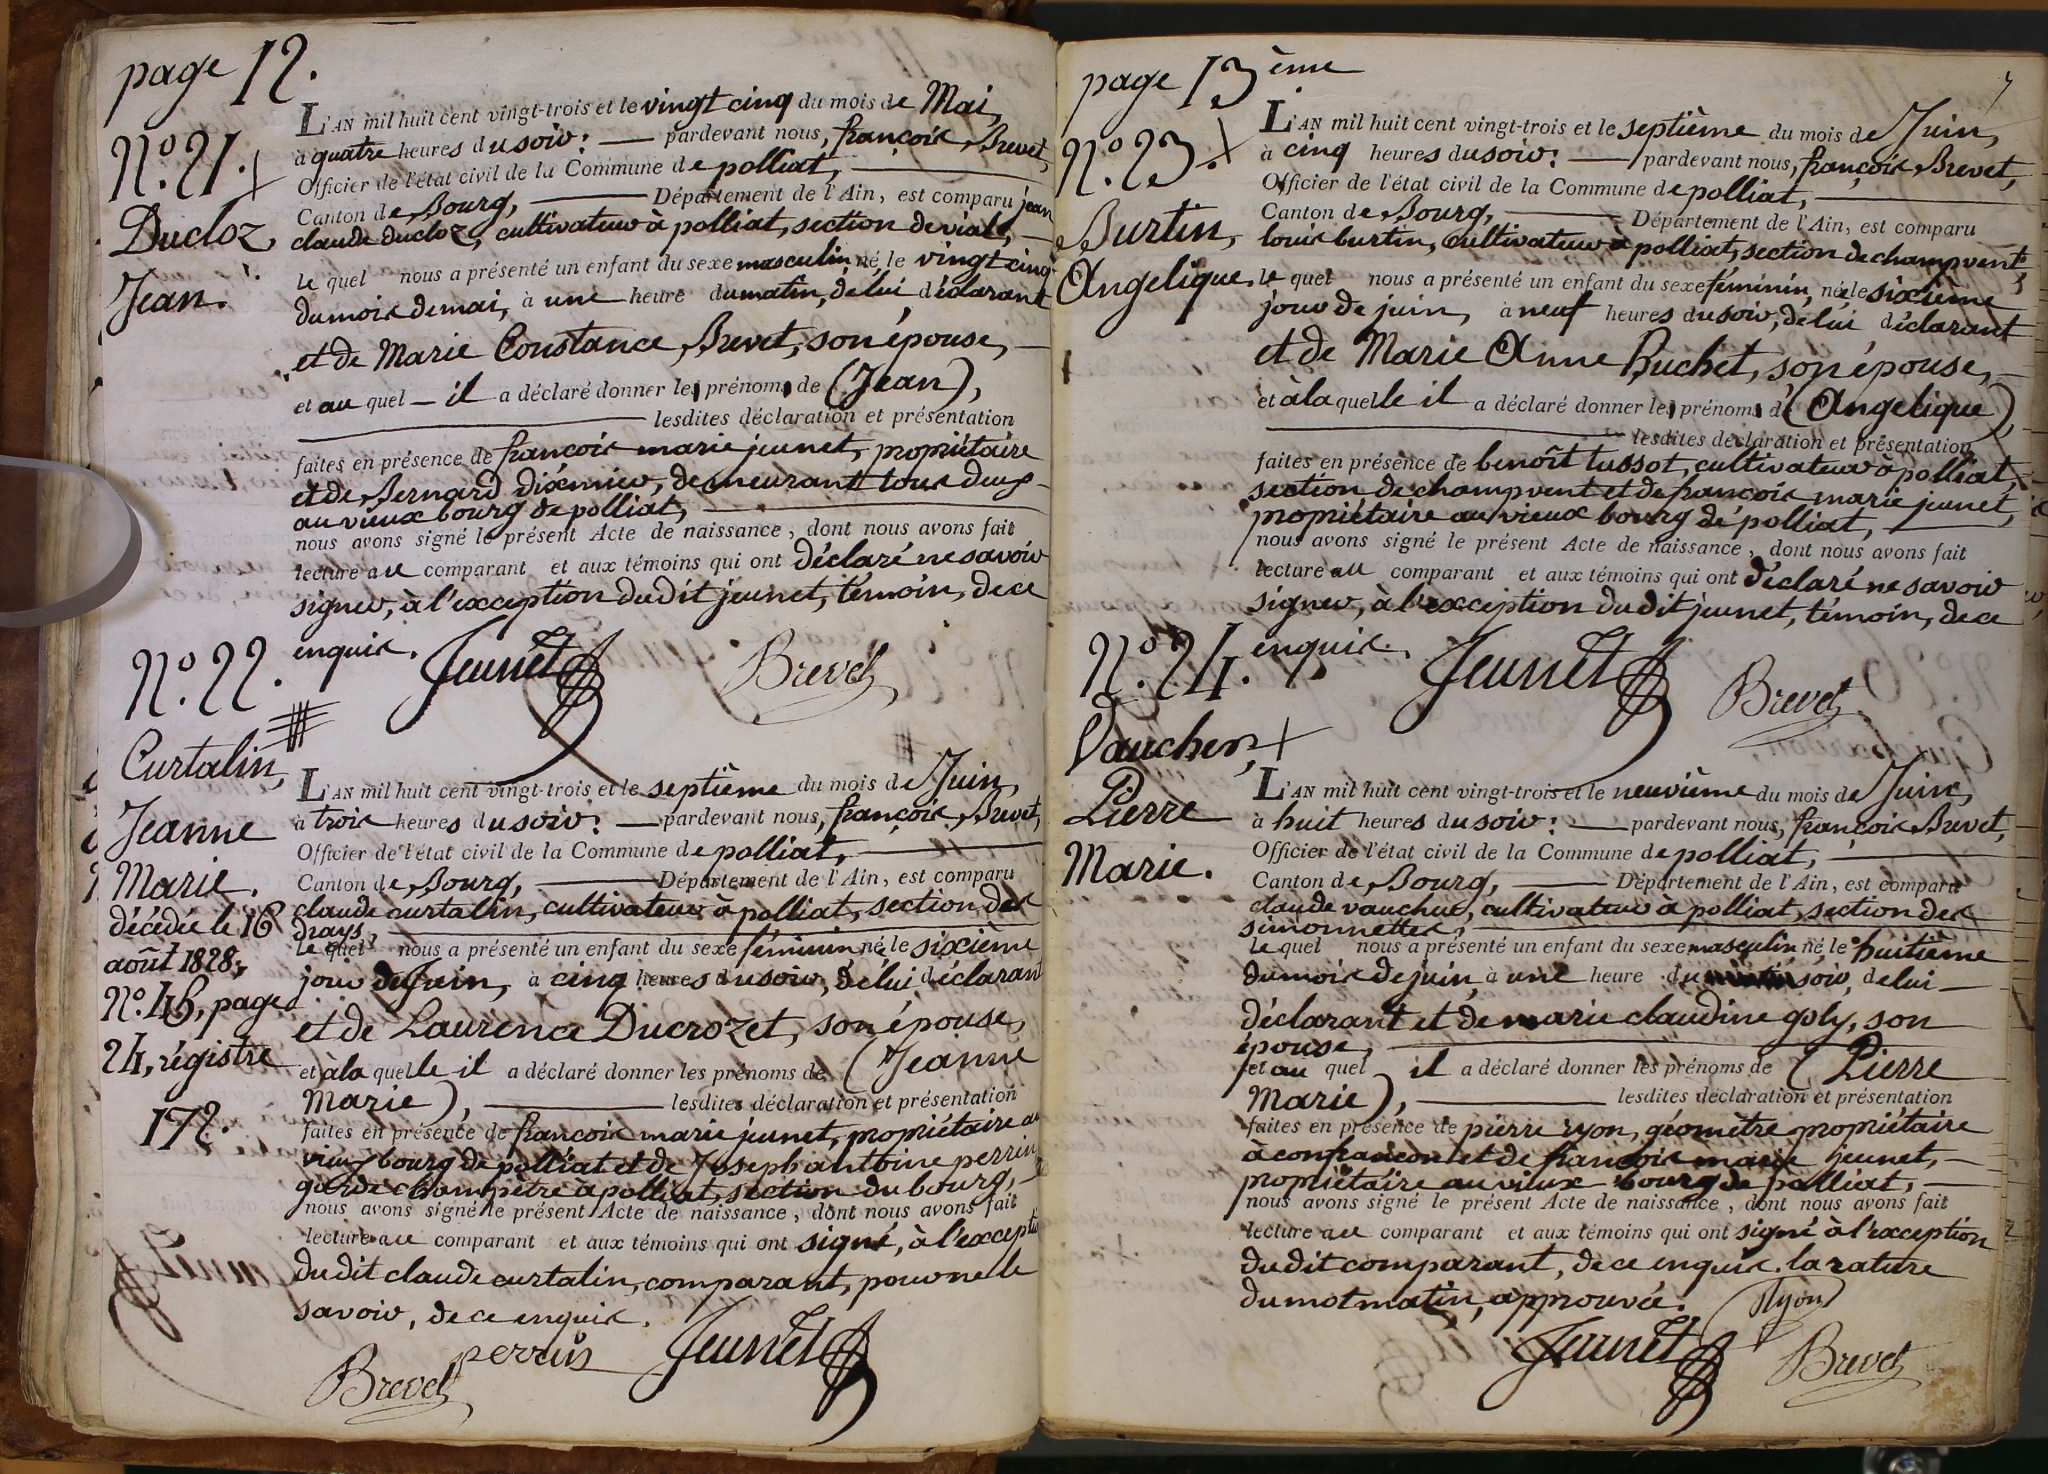 page 12.
N.º 21.
Ducloz,
Jean.
L'AN mil huit cent vingt-trois et le vingt cinq du mois de Mai,
à quatre heures du soir: — pardevant nous, françois Brevet,
Officier de l'état civil de la Commune de polliat,
Canton de Bourg, — Département de l'Ain, est comparu jean
claude ducloz, cultivateur à polliat, section de viale,
le quel nous a présenté un enfant du sexe masculin né le vingt cinq
du mois de mai, à une heure du matin, de lui déclarant
et de Marie Constance Brevet, son épouse, —
et au quel — il a déclaré donner les prénoms de (Jean),
— lesdites déclaration et présentation
faites en présence de françois marie jeunet, propriétaire
et de Bernard dixmier, demeurant tous deux
au vieux bourg de polliat,
nous avons signé le présent Acte de naissance, dont nous avons fait
lecture au comparant et aux témoins qui ont déclaré ne savoir
signer, à l'exception du dit jeunet, témoin, de ce
enquis.
Jeunet Brevet
N.º 22.
Curtalin,
Jeanne
Marie.
décédée le 16
août 1828,
N.º 46, page
24, régistre
172.
L'AN mil huit cent vingt-trois et le septième du mois de Juin,
à trois heures du soir: — pardevant nous, françois Brevet,
Officier de l'état civil de la Commune de polliat,
Canton de Bourg, — Département de l'Ain, est comparu
claude curtalin, cultivateur à polliat, section des
drays,
le quel nous a présenté un enfant du sexe féminin né le sixième
jour de Juin, à cinq heures du soir, de lui déclarant
et de Laurence Ducrozet, son épouse,
et à la quelle il a déclaré donner les prénoms de (Jeanne
Marie), — lesdites déclaration et présentation
faites en présence de françois marie jeunet, propriétaire au
vieux bourg de polliat et de Joseph anthoine perrin,
garde champètre à polliat, section du bourg,
nous avons signé le présent Acte de naissance, dont nous avons fait
lecture au comparant et aux témoins qui ont signé, à l'exception
du dit claude curtalin, comparant, pour ne le
savoir, de ce enquis.
perrin Jeunet
Brevet
page 13ème
7
N.º 23.
Burtin,
Angelique.
L'AN mil huit cent vingt-trois et le septième du mois de Juin,
à cinq heures du soir: — pardevant nous, françois Brevet,
Officier de l'état civil de la Commune de polliat,
Canton de Bourg, — Département de l'Ain, est comparu
louis burtin, cultivateur à polliat, section de champvent,
le quel nous a présenté un enfant du sexe féminin, né le sixième
jour de juin, à neuf heures du soir, de lui déclarant
et de Marie Anne Buchet, son épouse,
et à la quelle il a déclaré donner les prénoms de (Angelique),
— lesdites déclaration et présentation
faites en présence de benoît tussot, cultivateur à polliat,
section de champvent et de françois marie jeunet,
propriétaire au vieux bourg de polliat,
nous avons signé le présent Acte de naissance, dont nous avons fait
lecture au comparant et aux témoins qui ont déclaré ne savoir
signer, à l'exception du dit jeunet, témoin, de ce
enquis.
Jeunet Brevet
N.º 24.
Vaucher,
Pierre
Marie.
L'AN mil huit cent vingt-trois et le neuvième du mois de Juin,
à huit heures du soir: — pardevant nous, françois Brevet,
Officier de l'état civil de la Commune de polliat,
Canton de Bourg, — Département de l'Ain, est comparu
claude vaucher, cultivateur à polliat, section des
simonnettes,
le quel nous a présenté un enfant du sexe masculin, né le huitième
du mois de juin, à une heure du soir, de lui —
déclarant et de marie claudine goly, son
épouse,
et au quel il a déclaré donner les prénoms de (Pierre
Marie), — lesdites déclaration et présentation
faites en présence de pierre ryon, géomètre propriétaire
à confrançon et de françois marie jeunet, —
propriétaire au vieux bourg de polliat, —
nous avons signé le présent Acte de naissance, dont nous avons fait
lecture au comparant et aux témoins qui ont signé à l'exception
du dit comparant, de ce enquis. la rature
du mot matin, approuvée. Ryon
Jeunet Brevet